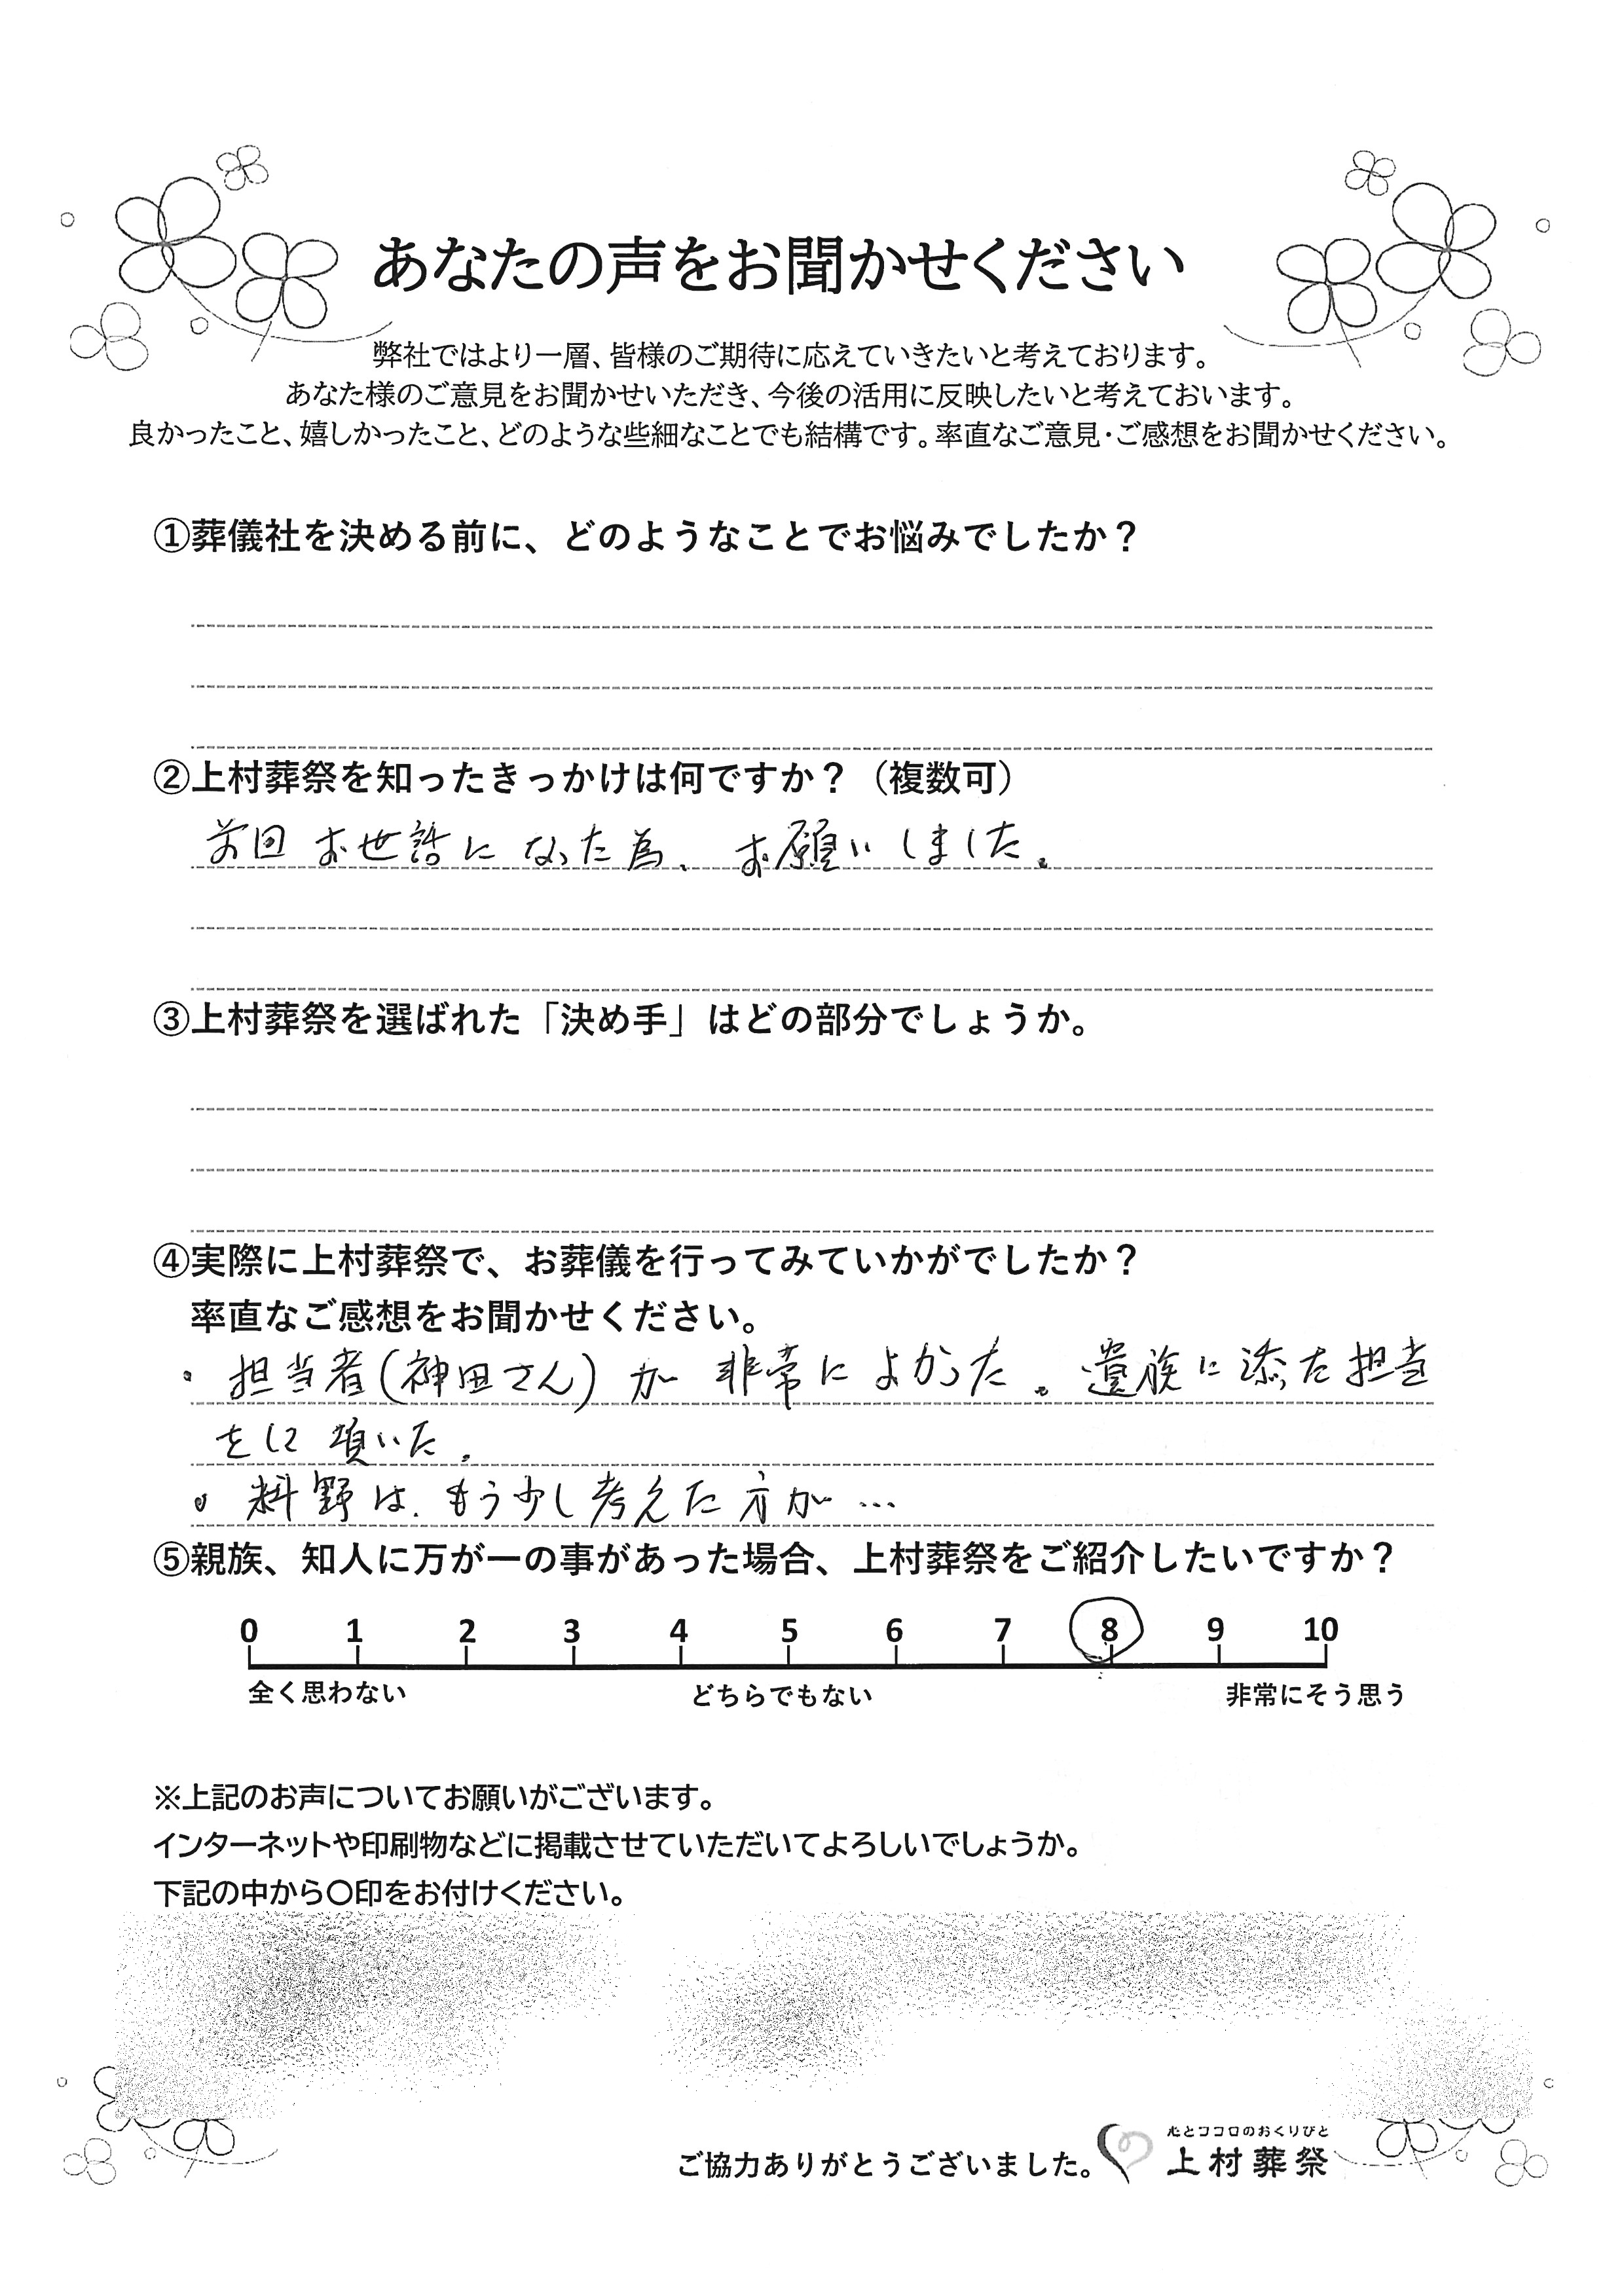 あなたの声をお聞かせください
弊社ではより一層、皆様のご期待に応えていきたいと考えております。
あなた様のご意見をお聞かせいただき、今後の活用に反映したいと考えておいます。
良かったこと、嬉しかったこと、どのような些細なことでも結構です。率直なご意見・ご感想をお聞かせください。
①葬儀社を決める前に、どのようなことでお悩みでしたか？
②上村葬祭を知ったきっかけは何ですか？（複数可）
前回お世話になった為、お願いしました。
③上村葬祭を選ばれた「決め手」はどの部分でしょうか。
④実際に上村葬祭で、お葬儀を行ってみていかがでしたか？
率直なご感想をお聞かせください。
・担当者(神田さん)が非常によかった。遺族に添った担当
をして頂いた。
・料野は、もう少し考えた方が…
⑤親族、知人に万が一の事があった場合、上村葬祭をご紹介したいですか？
0 1 2 3 4 5 6 7 8 9 10
全く思わない どちらでもない 非常にそう思う
※上記のお声についてお願いがございます。
インターネットや印刷物などに掲載させていただいてよろしいでしょうか。
下記の中から〇印をお付けください。
心とココロのおくりびと
ご協力ありがとうございました。 上村葬祭